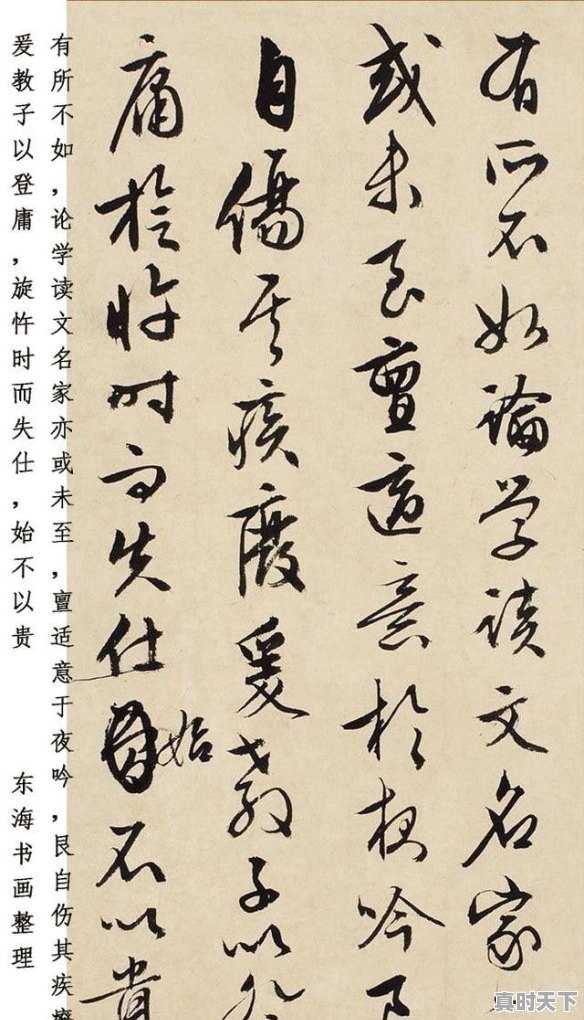 有所不如論學讀文名家
或未至亶適意於夜吟艮
自傷其疾廢爰教子以登
庸旋忤時而失仕始不以貴
有所不如，论学读文名家亦或未至，亶适意于夜吟，艮自伤其疾
爰教子以登庸，旋忤时而失仕，始不以贵
东海书画整理
真时天下